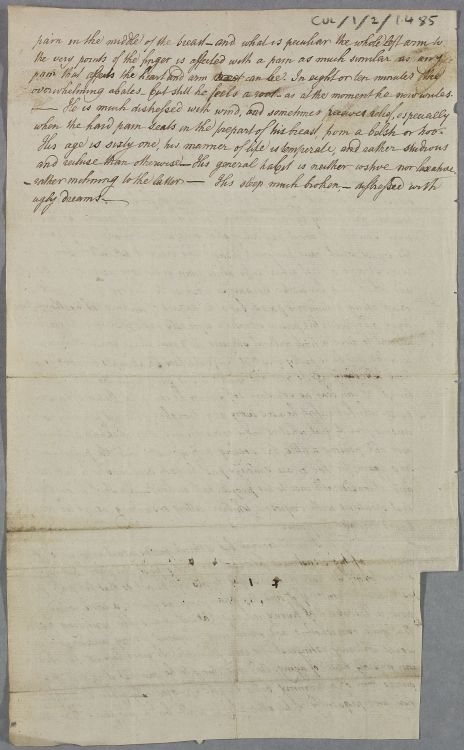 CUL/1/2/1485
pain in the middle of the breast – and what is peculiar the whole left arm to
the very points of the finger is affected with a pain as much similar as any
pain that affects the heart and arm can be. In eight or ten minutes this
overwhelming abates, but still he feels a root as at the moment he now writes.
— He is much distressed with wind, and sometimes receives relief, especially
when the hard pain beats in the forepart of his breast, from a belch or two.
His age is sixty one, his manner of life is temperate, and rather studious
and recluse than otherwise – His general habit is neither costive nor laxative
rather inclining to the latter — His sleep much broken, – distressed with
ugly dreams. —